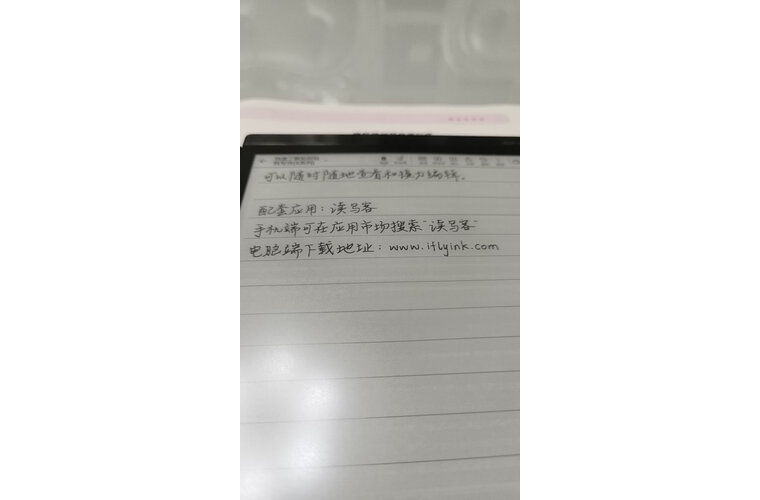 可以随时随地查看和接力编辑。
配套应用：读写客
手机端可在应用市场搜索“读写客”
电脑端下载地址：www.iflyink.com